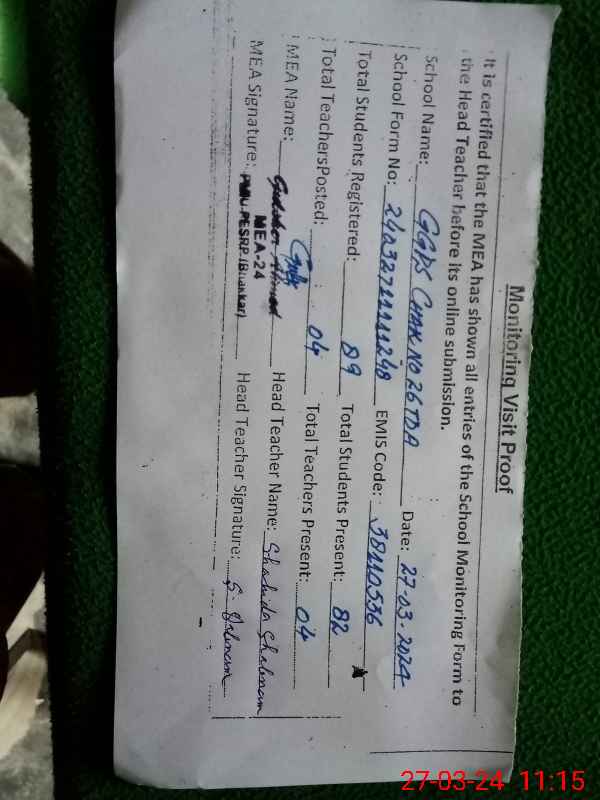 Monitoring Visit Proof
It is certified that the MEA has shown all entries of the School Monitoring Form to
the Head Teacher before its online submission.
School Name: GGPS CHAK NO 26 TDA Date: 27-03-2024
School Form No: EMIS Code: 38110536
Total Students Registered: 89 Total Students Present: 82
Total TeachersPosted: 04 Total Teachers Present: 04
MEA Name: Head Teacher Name: Shahida Shabnam
MEA-24
MEA Signature: PMIU-PESRP (Bhakkar) Head Teacher Signature: S. Shabnam
27-03-24 11:15